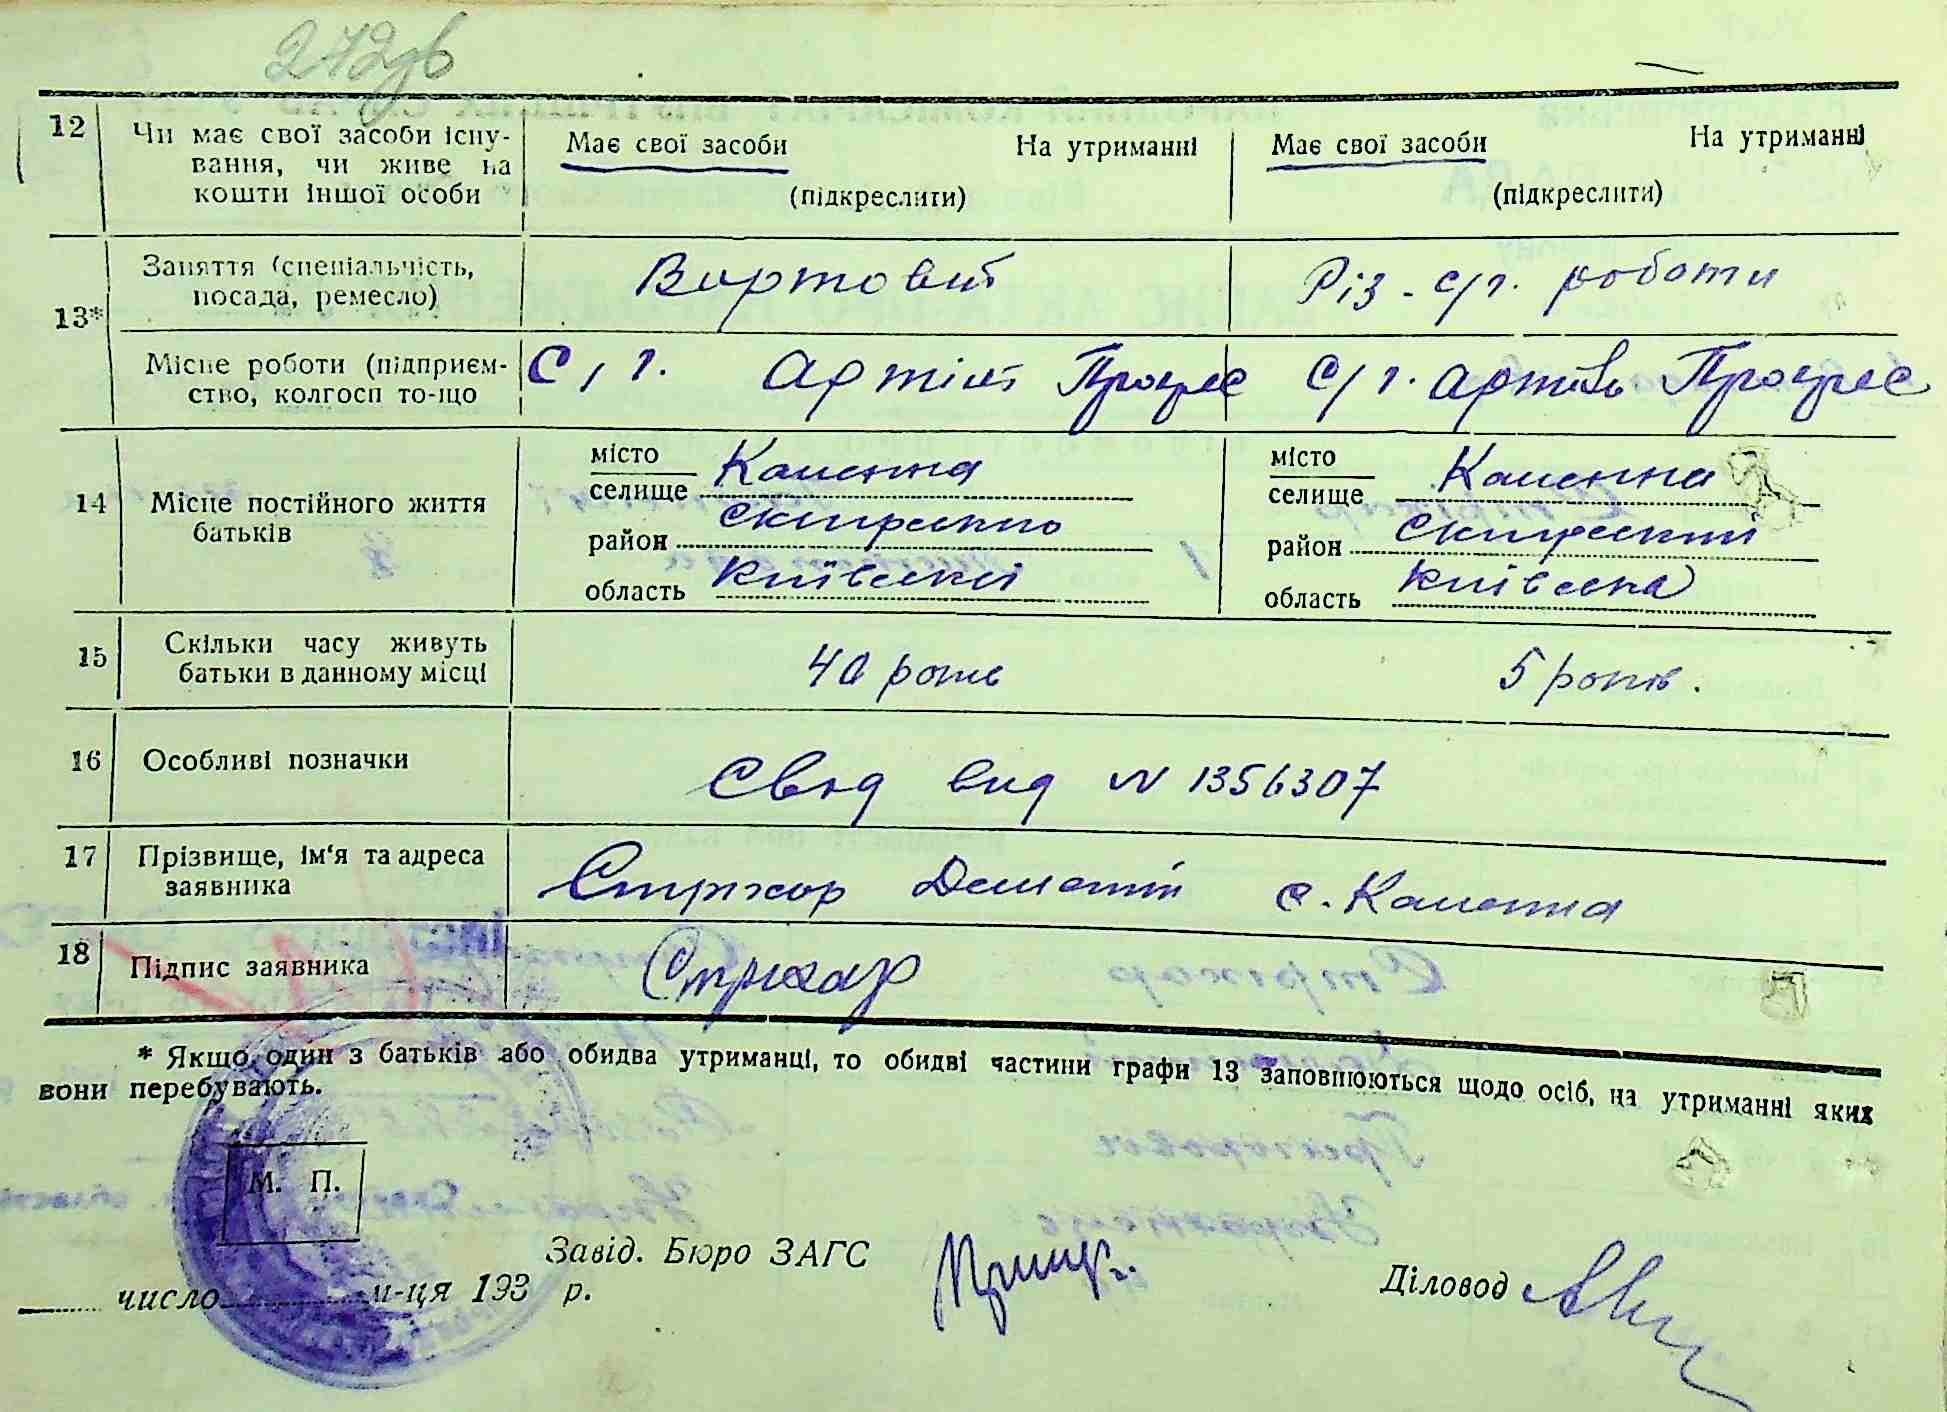 272зв
12 Чи має свої засоби існу-
вання, чи живе на
кошти іншої особи
Має свої засоби На утриманні
(підкреслити)
Має свої засоби На утриманні
(підкреслити)
13*
Заняття (спеціальність,
посада, ремесло)
Вартовий
Різ - с/г. роботи
Місце роботи (підприєм-
ство, колгосп то-що
С/г. Артіль Прогрес
с/г. артіль Прогрес
14 Місце постійного життя
батьків
місто
селище Каменна
район Сквирський
область Київській
місто
селище Каменна
район Сквирський
область Київська
15 Скільки часу живуть
батьки в данному місці
40 років
5 років.
16 Особливі позначки
Свід вид N 1356307
17 Прізвище, ім'я та адреса
заявника
Стрижар Дементій с. Каменна
18 Підпис заявника
Стрижар
* Якщо один з батьків або обидва утриманці, то обидві частини графи 13 заповнюються щодо осіб, на утриманні яких
вони перебувають.
М. П.
Завід. Бюро ЗАГС
Діловод
число м-ця 193 р.